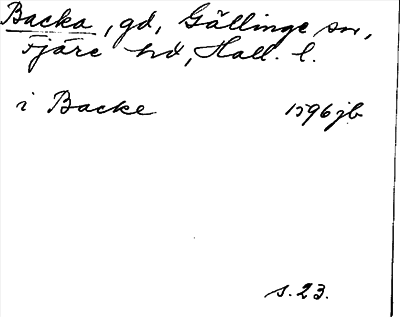 Backa, gd, Gällinge sn,
Fjäre hd, Hall. l.
i Backe 1596 jb
s. 23.